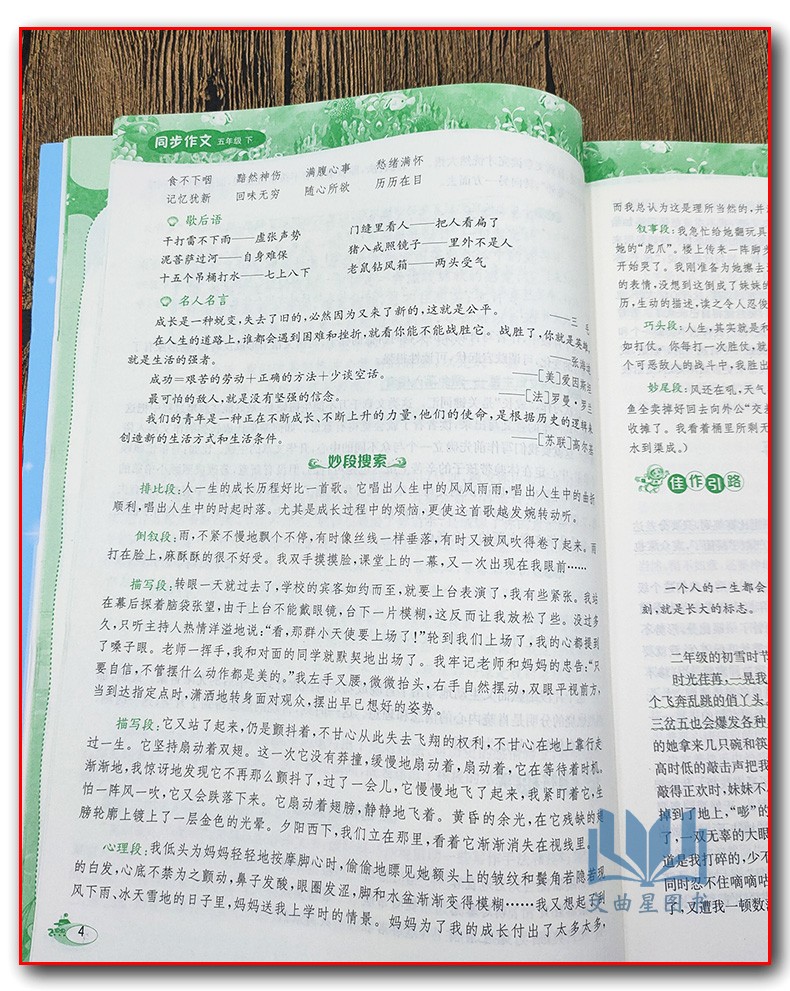 同步作文 五年级 下
食不下咽 黯然神伤 满腹心事 愁绪满怀
记忆犹新 回味无穷 随心所欲 历历在目
歇后语
干打雷不下雨——虚张声势 门缝里看人——把人看扁了
泥菩萨过河——自身难保 猪八戒照镜子——里外不是人
十五个吊桶打水——七上八下 老鼠钻风箱——两头受气
名人名言
成长是一种蜕变,失去了旧的,必然因为又来了新的,这就是公平。 ——三毛
在人生的道路上,谁都会遇到困难和挫折,就看你能不能战胜它。战胜了,你就是英雄,
就是生活的强者。 ——张海迪
成功=艰苦的劳动+正确的方法+少谈空话。 ——[美]爱因斯坦
最可怕的敌人,就是没有坚强的信念。 ——[法]罗曼·罗兰
我们的青年是一种正在不断成长、不断上升的力量,他们的使命,是根据历史的逻辑来
创造新的生活方式和生活条件。 ——[苏联]高尔基
妙段搜索
排比段:人一生的成长历程好比一首歌。它唱出人生中的风风雨雨,唱出人生中的曲折
顺利,唱出人生中的时起时落。尤其是成长过程中的烦恼,更使这首歌越发婉转动听。
倒叙段:雨,不紧不慢地飘个不停,有时像丝线一样垂落,有时又被风吹得卷了起来。雨
打在脸上,麻酥酥的很不好受。我双手摸摸脸,课堂上的一幕,又一次出现在我眼前……
描写段:转眼一天就过去了,学校的宾客如约而至,就要上台表演了,我有些紧张。我站
在幕后探着脑袋张望,由于上台不能戴眼镜,台下一片模糊,这反而让我放松了些。没过多
久,只听主持人热情洋溢地说:“看,那群小天使要上场了!”轮到我们上场了,我的心都提到
了嗓子眼。老师一挥手,我和对面的同学就默契地出场了。我牢记老师和妈妈的忠告:“只
要自信,不管摆什么动作都是美的。”我左手叉腰,微微抬头,右手自然摆动,双眼平视前方,
当到达指定点时,潇洒地转身面对观众,摆出早已想好的姿势。
描写段:它又站了起来,仍是颤抖着,不甘心从此失去飞翔的权利,不甘心在地上靠行走
过一生。它坚持扇动着双翅。这一次它没有莽撞,缓慢地扇动着,扇动着,它在等待着时机。
渐渐地,我惊讶地发现它不再那么颤抖了,过了一会儿,它慢慢地飞了起来,我紧盯着它,生
怕一阵风一吹,它又会跌落下来。它扇动着翅膀,静静地飞着。黄昏的余光,在它残缺的翅
膀轮廓上镀上了一层金色的光晕。夕阳西下,我们立在那里,看着它渐渐消失在视线里。
心理段:我低头为妈妈轻轻地按摩脚心时,偷偷地瞟见她额头上的皱纹和鬓角若隐若现
的白发,心底不禁为之颤动,鼻子发酸,眼圈发涩,脚和水盆渐渐变得模糊……我又想起了
风下雨、冰天雪地的日子里,妈妈送我上学时的情景。妈妈为了我的成长付出了太多太多,
4
而我总认为这是理所当然的,并
叙事段:我急忙给她翻玩具
她的“虎爪”。楼上传来一阵脚步
开始哭了。我刚准备为她擦去
的表情,没想到这倒成了妹妹的
历,生动的描述,读之令人忍俊
巧头段:人生,其实就是和
如打仗。你每打一次胜仗,就
个可恶敌人的战斗中,我胜出
妙尾段:风还在吼,天气
鱼全卖掉好回去向外公“交差
收摊了。我看着桶里所剩无
水到渠成。)
佳作引路
一个人的一生都会
刻,就是长大的标志。
二年级的初雪时节
时光荏苒,一晃我
个飞奔乱跳的俏丫头。
三岔五也会爆发各种
的她拿来几只碗和筷
高时低的敲击声把我
敲得正欢时,妹妹不
掉到了地上,“嘭”的
了,一双无辜的大眼
道是我打碎的,少不
同时忍不住嘀嘀咕
了,又遭我一顿数落
文曲星图书